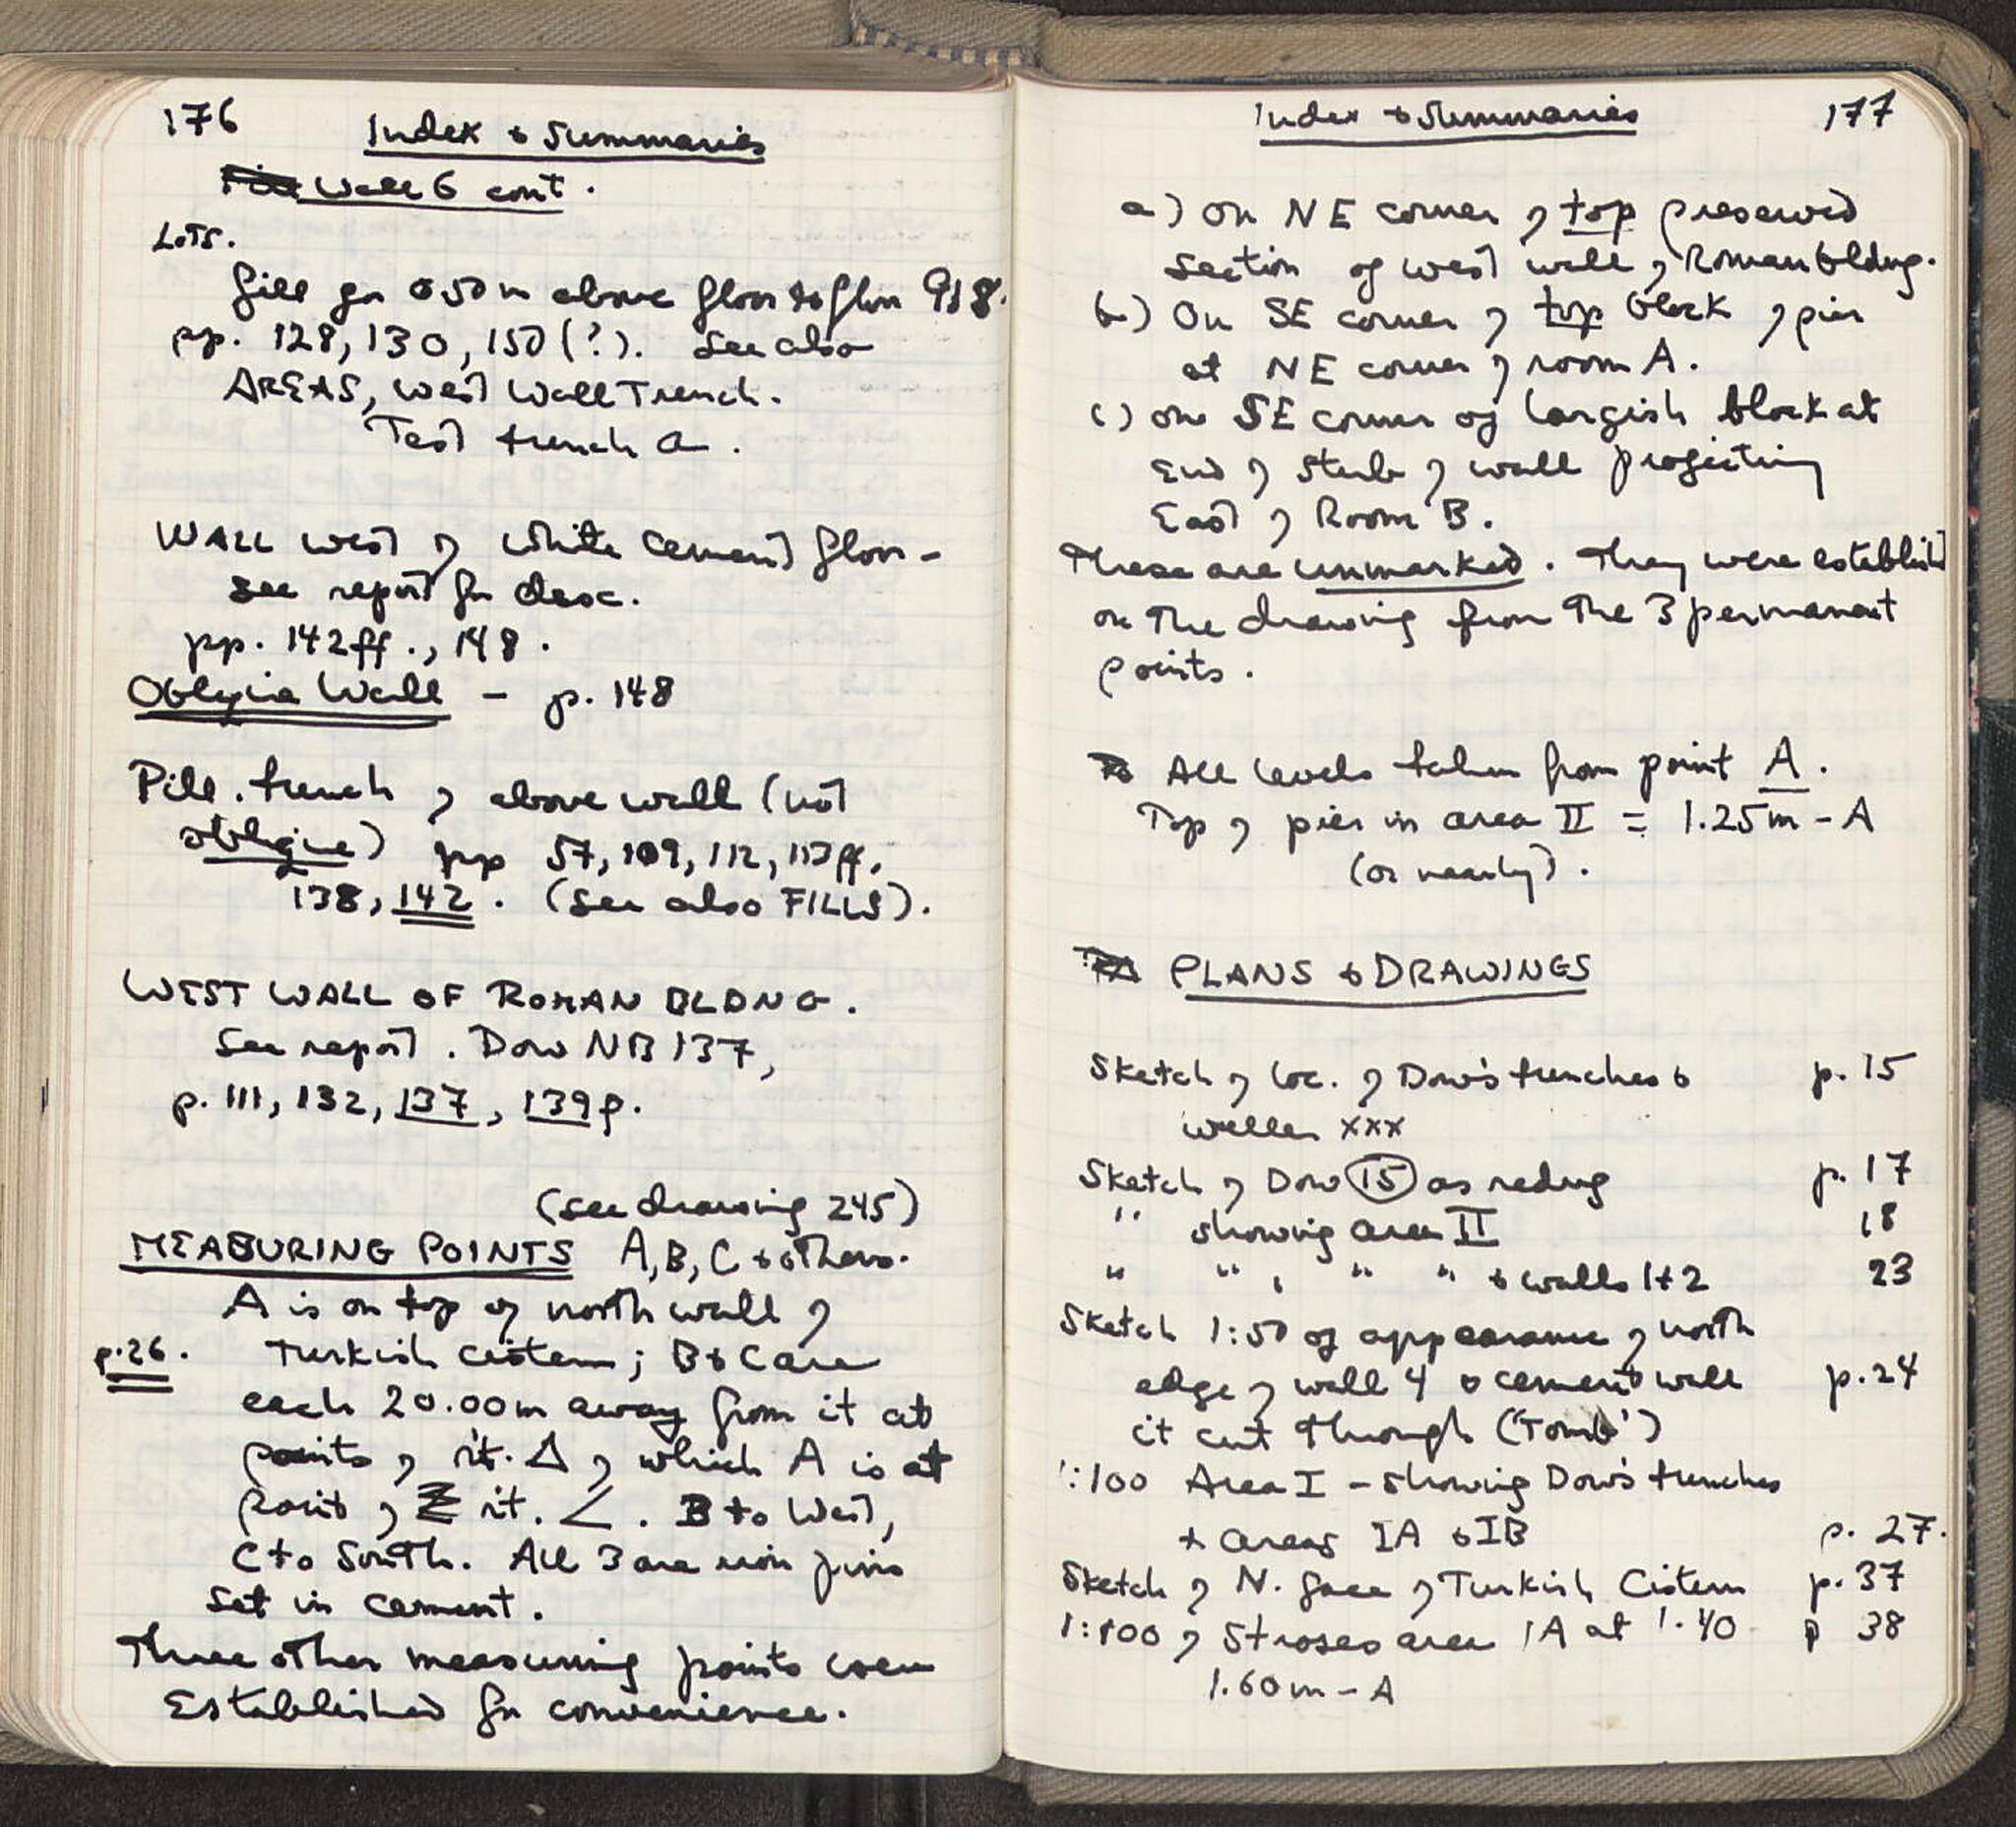 176
Index & Summaries
Wall 6 cont.
LOTS.
fill fr 0 50 m above floor to floor 918.
pp. 128, 130, 150 (?). See also
AREAS, West Wall Trench.
Test trench a.
WALL west of white cement floor -
see report for desc.
pp. 142ff., 148.
Oblique Wall - p. 148
Fill, trench, above wall (not
oblique) pp 57, 109, 112, 113ff,
138, 142. (See also FILLS).
WEST WALL OF ROMAN BLDNG.
See report. Dow NB 137,
p. 111, 132, 137, 139f.
(see drawing 245)
MEASURING POINTS A, B, C & others.
A is on top of north wall of
p. 26. Turkish cistern; B & C are
each 20.00m away from it at
points of rt. Δ, of which A is at
point of rt. ∠. B to West,
C to South. All 3 are iron pins
set in cement.
Three other measuring points were
Established for convenience.
Index & Summaries
177
a) On NE corner of top preserved
section of west wall of Roman bldng.
b) On SE corner of top block of pier
at NE corner of room A.
c) on SE corner of largish block at
End of stub of wall projecting
East of Room B.
These are unmarked. They were establish
on the drawing from the 3 permanent
points.
All levels taken from point A.
Top of pier in area II = 1.25m - A
(or nearly).
PLANS & DRAWINGS
Sketch of loc. of Dow's trenches & p. 15
walls xxx
Sketch of Dow 15 as redug p. 17
" showing area II 18
" " , " " & walls 1+2 23
Sketch 1:50 of appearance of north
edge of wall 4 & cement wall p. 24
it cut through ("Tomb")
1:100 Area I - showing Dow's trenches
+ areas IA & IB p. 27.
Sketch of N. face of Turkish Cistern p. 37
1:100 of Stroses area IA at 1.40 p 38
1.60m - A